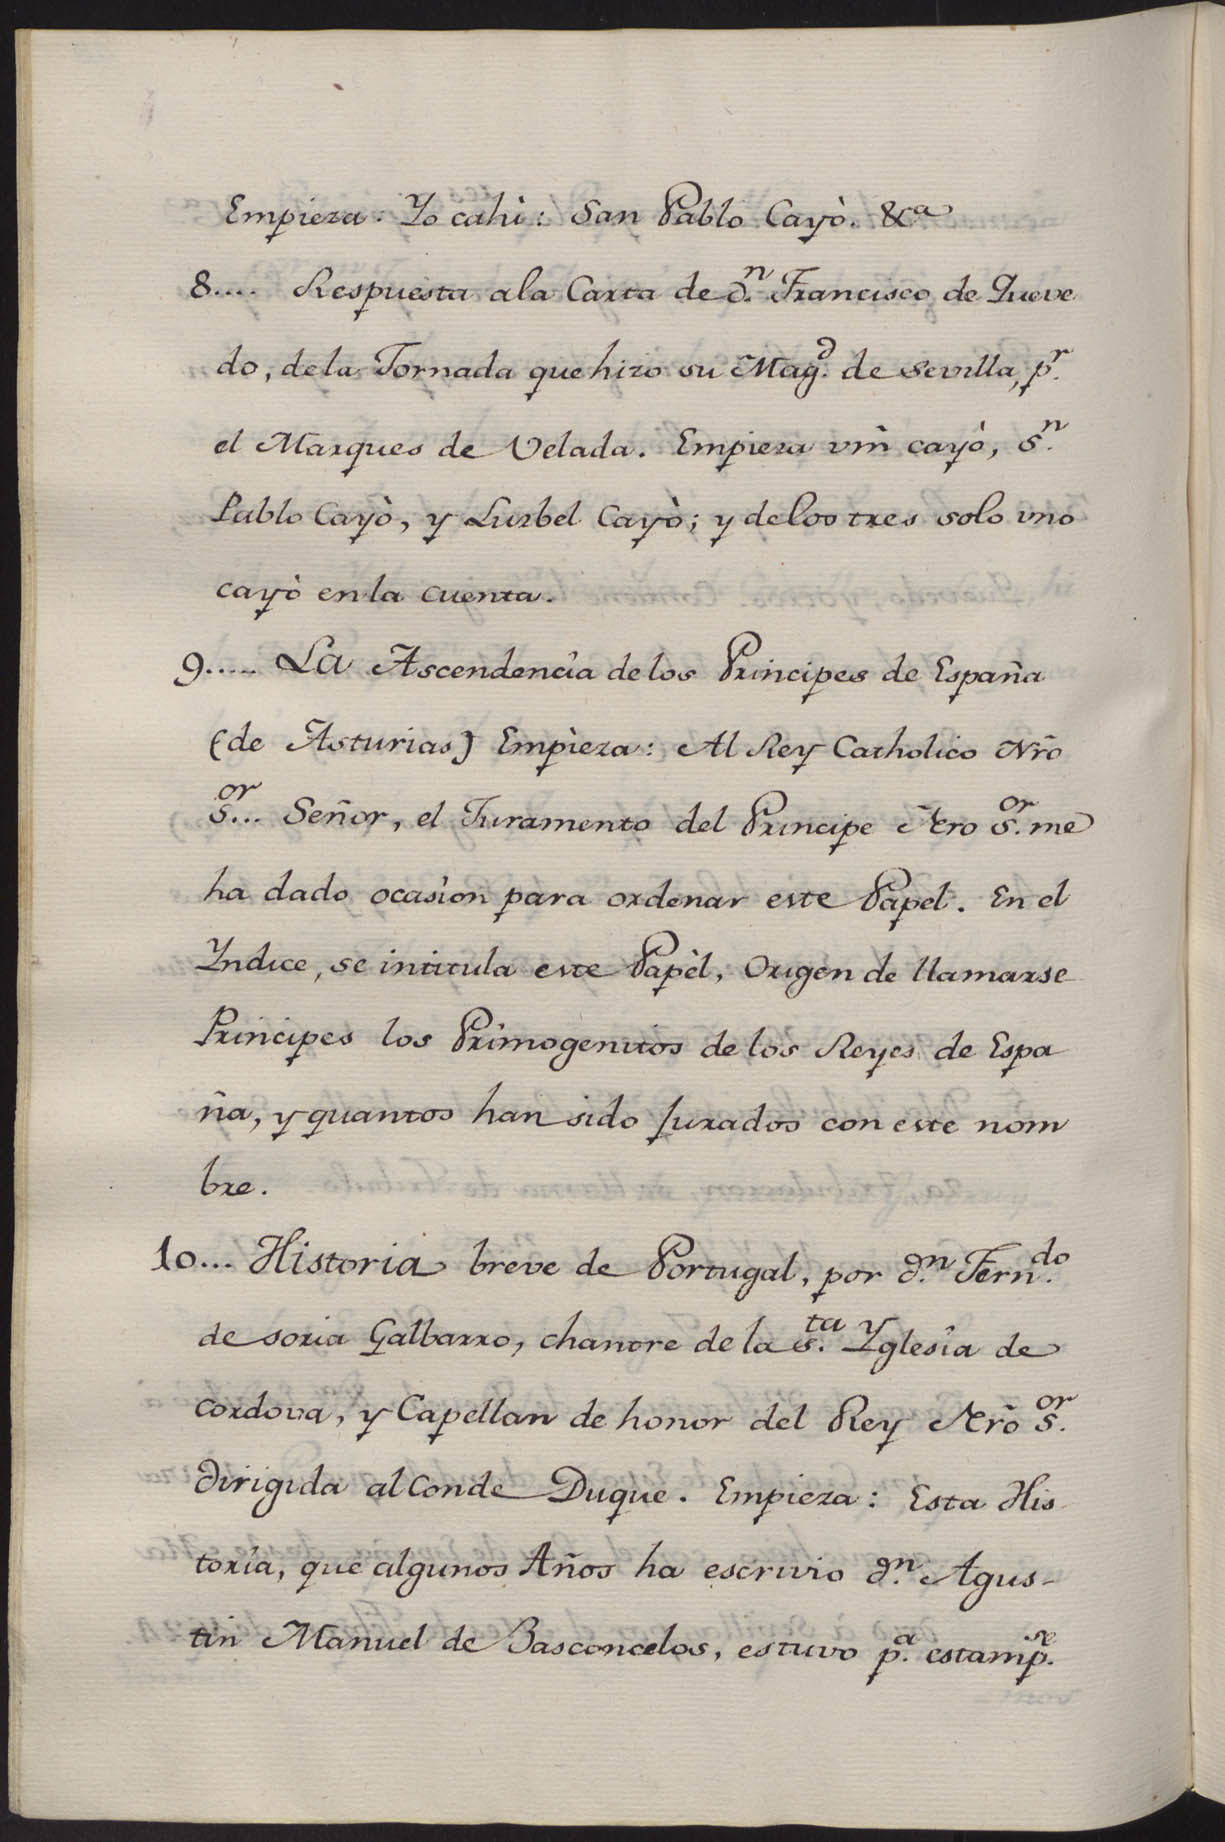 Empieza. Yo cahì: San Pablo Cayò. &ca
8.... Respuesta ala Carta de Dn. Francisco de Queve
do, dela Jornada que hizo su Magd. de Sevilla, pr.
el Marques de Velada. Empieza vm̃ cayò, Sn.
Pablo Cayò, y Luzbel Cayò; y delos tres solo uno
cayò en la cuenta.
9..... La Ascendencia de los Principes de España
(de Asturias) Empieza: Al Rey Catholico Nr̃o
Sor... Señor, el Juramento del Principe Ñro Sor. me
ha dado ocasion para ordenar este Papel. En el
Yndice, se intitula este Papèl, Origen de llamarse
Principes los Primogenitos de los Reyes de Espa
ña, y quantos han sido Jurados con este nom
bre.
10... Historia breve de Portugal, por Dn. Ferndo.
de soria Galbarro, chantre de la Sta. Yglesia de
cordova, y Capellan de honor del Rey Nr̃o Sor.
Dirigida al Conde Duque. Empieza: Esta His
toria, que algunos Años ha escrivio Dn. Agus-
tin Manuel de Basconcelos, estuvo pa. estamp̃se.